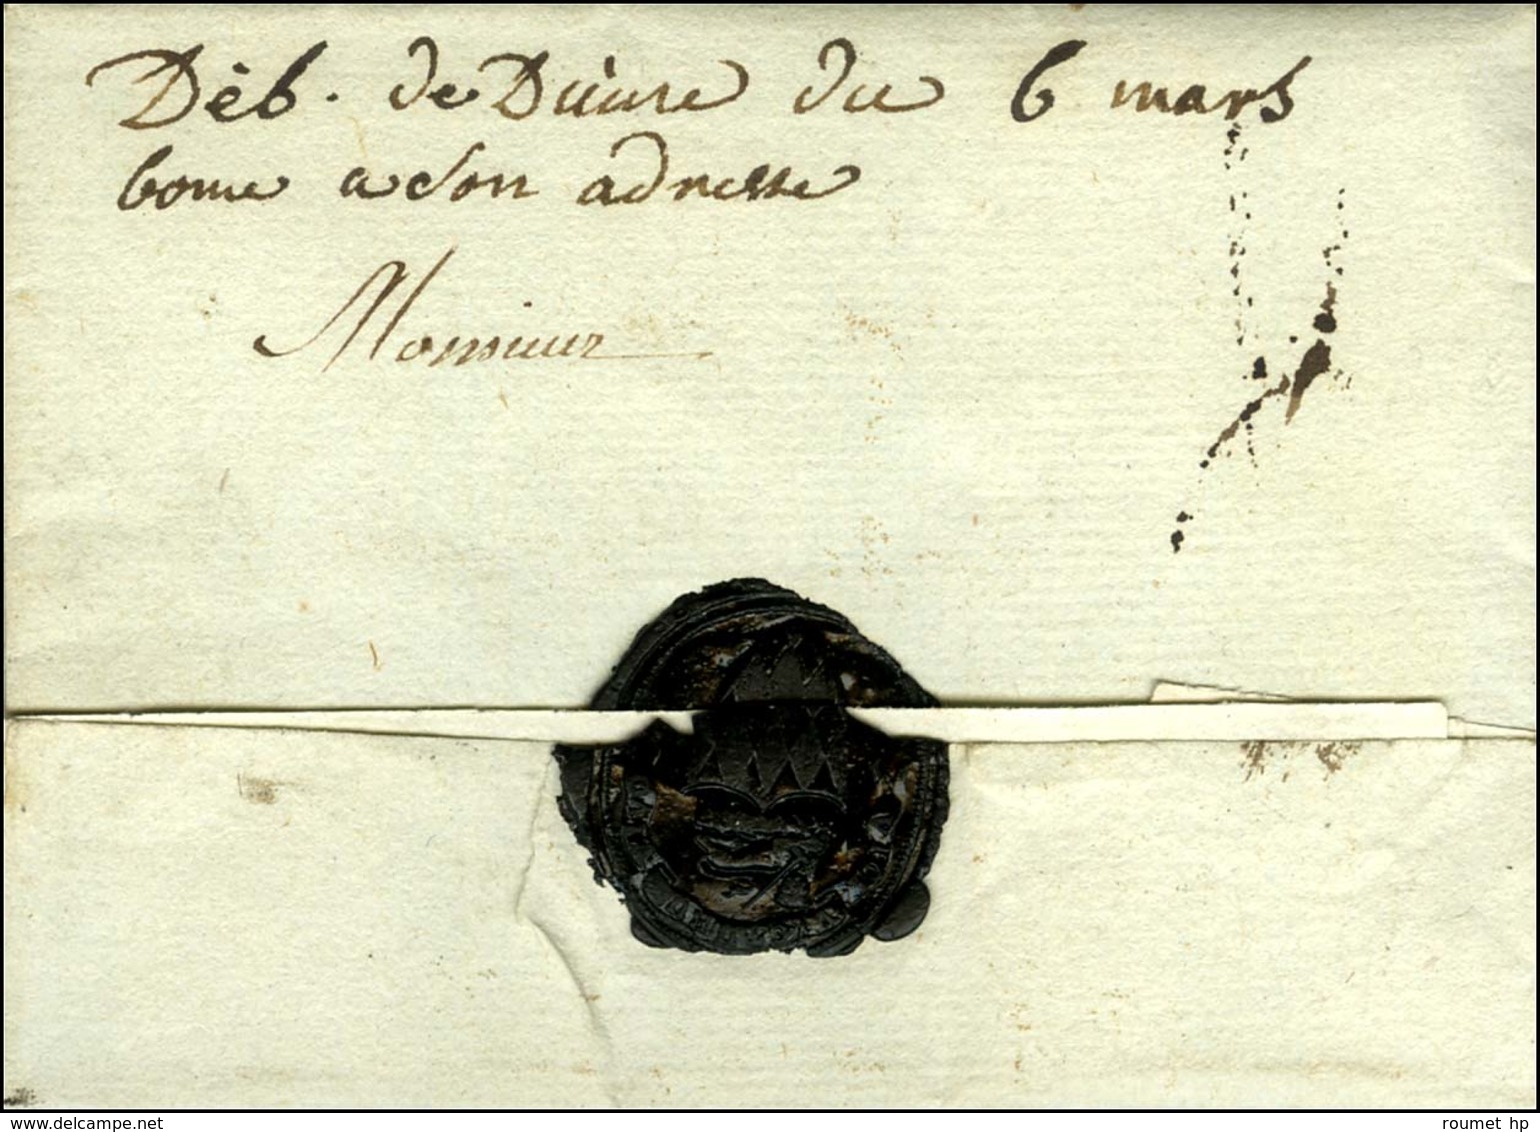 Dèb. de Duine du 6 mars
bonne a son adresse
Monsieur
delcampe.net
roumet hp